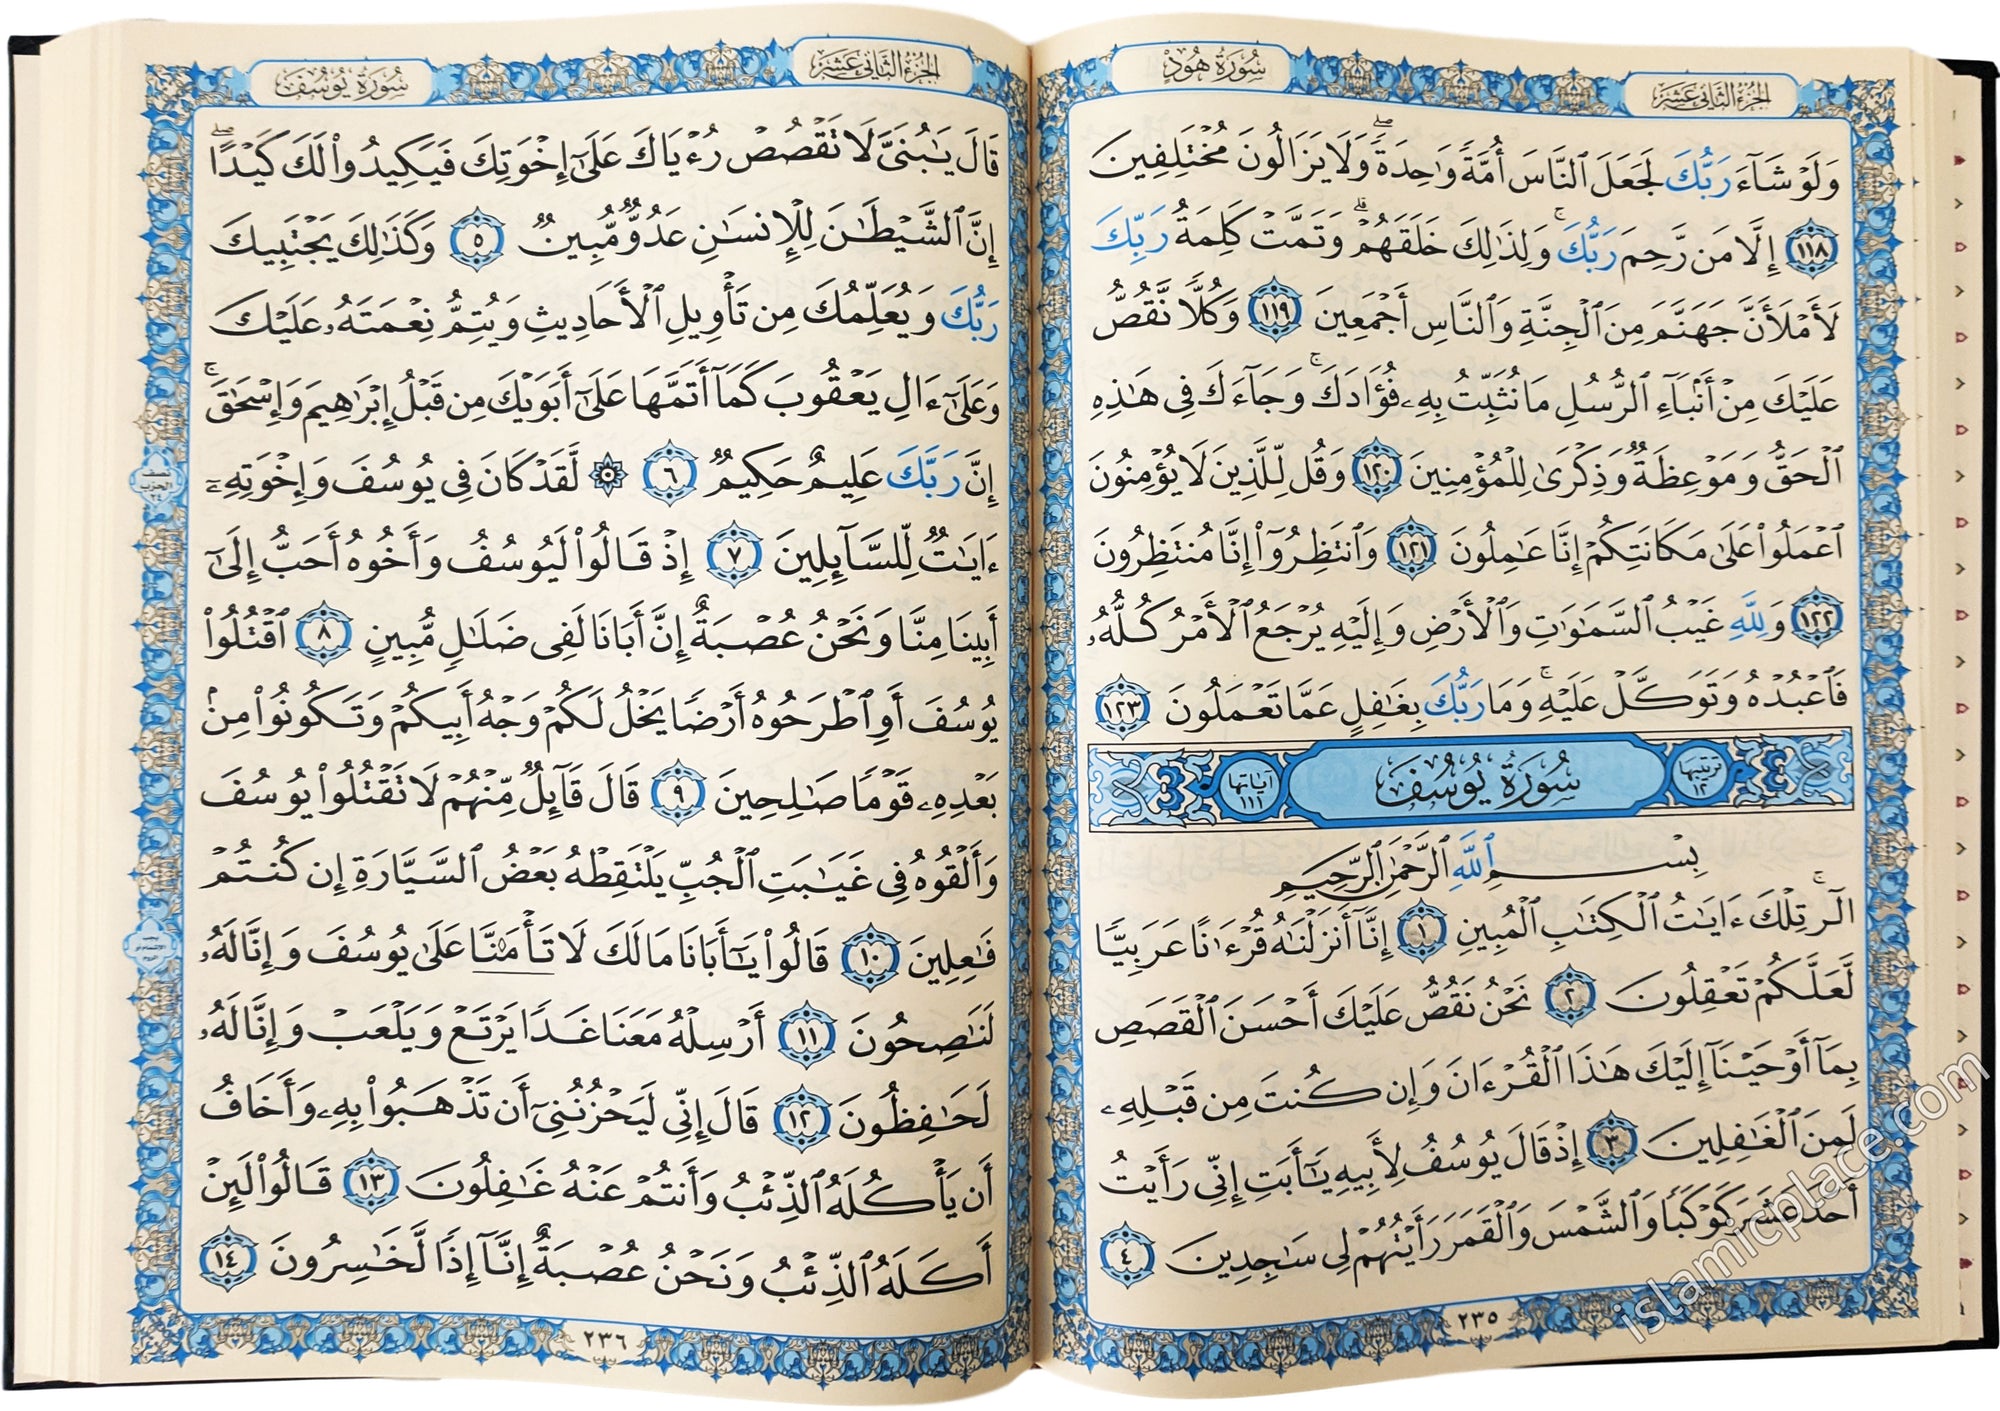 الجزء الثاني عشر
سورة هود
وَلَوْ شَآءَ رَبُّكَ لَجَعَلَ ٱلنَّاسَ أُمَّةً وَٰحِدَةً ۖ وَلَا يَزَالُونَ مُخْتَلِفِينَ
١١٨ إِلَّا مَن رَّحِمَ رَبُّكَ ۚ وَلِذَٰلِكَ خَلَقَهُمْ ۗ وَتَمَّتْ كَلِمَةُ رَبِّكَ
لَأَمْلَأَنَّ جَهَنَّمَ مِنَ ٱلْجِنَّةِ وَٱلنَّاسِ أَجْمَعِينَ ١١٩ وَكُلًّا نَّقُصُّ
عَلَيْكَ مِنْ أَنۢبَآءِ ٱلرُّسُلِ مَا نُثَبِّتُ بِهِۦ فُؤَادَكَ ۚ وَجَآءَكَ فِى هَٰذِهِ
ٱلْحَقُّ وَمَوْعِظَةٌ وَذِكْرَىٰ لِلْمُؤْمِنِينَ ١٢٠ وَقُل لِّلَّذِينَ لَا يُؤْمِنُونَ
ٱعْمَلُوا۟ عَلَىٰ مَكَانَتِكُمْ إِنَّا عَٰمِلُونَ ١٢١ وَٱنتَظِرُوٓا۟ إِنَّا مُنتَظِرُونَ
١٢٢ وَلِلَّهِ غَيْبُ ٱلسَّمَٰوَٰتِ وَٱلْأَرْضِ وَإِلَيْهِ يُرْجَعُ ٱلْأَمْرُ كُلُّهُۥ
فَٱعْبُدْهُ وَتَوَكَّلْ عَلَيْهِ ۚ وَمَا رَبُّكَ بِغَٰفِلٍ عَمَّا تَعْمَلُونَ ١٢٣
ترتيبها ١٢ سُورَةُ يُوسُفَ آياتها ١١١
بِسْمِ ٱللَّهِ ٱلرَّحْمَٰنِ ٱلرَّحِيمِ
الٓر ۚ تِلْكَ ءَايَٰتُ ٱلْكِتَٰبِ ٱلْمُبِينِ ١ إِنَّآ أَنزَلْنَٰهُ قُرْءَٰنًا عَرَبِيًّا
لَّعَلَّكُمْ تَعْقِلُونَ ٢ نَحْنُ نَقُصُّ عَلَيْكَ أَحْسَنَ ٱلْقَصَصِ
بِمَآ أَوْحَيْنَآ إِلَيْكَ هَٰذَا ٱلْقُرْءَانَ وَإِن كُنتَ مِن قَبْلِهِۦ
لَمِنَ ٱلْغَٰفِلِينَ ٣ إِذْ قَالَ يُوسُفُ لِأَبِيهِ يَٰٓأَبَتِ إِنِّى رَأَيْتُ
أَحَدَ عَشَرَ كَوْكَبًا وَٱلشَّمْسَ وَٱلْقَمَرَ رَأَيْتُهُمْ لِى سَٰجِدِينَ ٤
٢٣٥
الجزء الثاني عشر
سورة يوسف
قَالَ يَٰبُنَىَّ لَا تَقْصُصْ رُءْيَاكَ عَلَىٰٓ إِخْوَتِكَ فَيَكِيدُوا۟ لَكَ كَيْدًا ۖ
إِنَّ ٱلشَّيْطَٰنَ لِلْإِنسَٰنِ عَدُوٌّ مُّبِينٌ ٥ وَكَذَٰلِكَ يَجْتَبِيكَ
رَبُّكَ وَيُعَلِّمُكَ مِن تَأْوِيلِ ٱلْأَحَادِيثِ وَيُتِمُّ نِعْمَتَهُۥ عَلَيْكَ
وَعَلَىٰٓ ءَالِ يَعْقُوبَ كَمَآ أَتَمَّهَا عَلَىٰٓ أَبَوَيْكَ مِن قَبْلُ إِبْرَٰهِيمَ وَإِسْحَٰقَ ۚ
إِنَّ رَبَّكَ عَلِيمٌ حَكِيمٌ ٦ ۞ لَّقَدْ كَانَ فِى يُوسُفَ وَإِخْوَتِهِۦٓ
ءَايَٰتٌ لِّلسَّآئِلِينَ ٧ إِذْ قَالُوا۟ لَيُوسُفُ وَأَخُوهُ أَحَبُّ إِلَىٰٓ
أَبِينَا مِنَّا وَنَحْنُ عُصْبَةٌ إِنَّ أَبَانَا لَفِى ضَلَٰلٍ مُّبِينٍ ٨ ٱقْتُلُوا۟
يُوسُفَ أَوِ ٱطْرَحُوهُ أَرْضًا يَخْلُ لَكُمْ وَجْهُ أَبِيكُمْ وَتَكُونُوا۟ مِنۢ
بَعْدِهِۦ قَوْمًا صَٰلِحِينَ ٩ قَالَ قَآئِلٌ مِّنْهُمْ لَا تَقْتُلُوا۟ يُوسُفَ
وَأَلْقُوهُ فِى غَيَٰبَتِ ٱلْجُبِّ يَلْتَقِطْهُ بَعْضُ ٱلسَّيَّارَةِ إِن كُنتُمْ
فَٰعِلِينَ ١٠ قَالُوا۟ يَٰٓأَبَانَا مَا لَكَ لَا تَأْمَ۫نَّا عَلَىٰ يُوسُفَ وَإِنَّا لَهُۥ
لَنَٰصِحُونَ ١١ أَرْسِلْهُ مَعَنَا غَدًا يَرْتَعْ وَيَلْعَبْ وَإِنَّا لَهُۥ
لَحَٰفِظُونَ ١٢ قَالَ إِنِّى لَيَحْزُنُنِىٓ أَن تَذْهَبُوا۟ بِهِۦ وَأَخَافُ
أَن يَأْكُلَهُ ٱلذِّئْبُ وَأَنتُمْ عَنْهُ غَٰفِلُونَ ١٣ قَالُوا۟ لَئِنْ
أَكَلَهُ ٱلذِّئْبُ وَنَحْنُ عُصْبَةٌ إِنَّآ إِذًا لَّخَٰسِرُونَ ١٤
نصف
الحزب
٢٤
٢٣٦
islamicplace.com